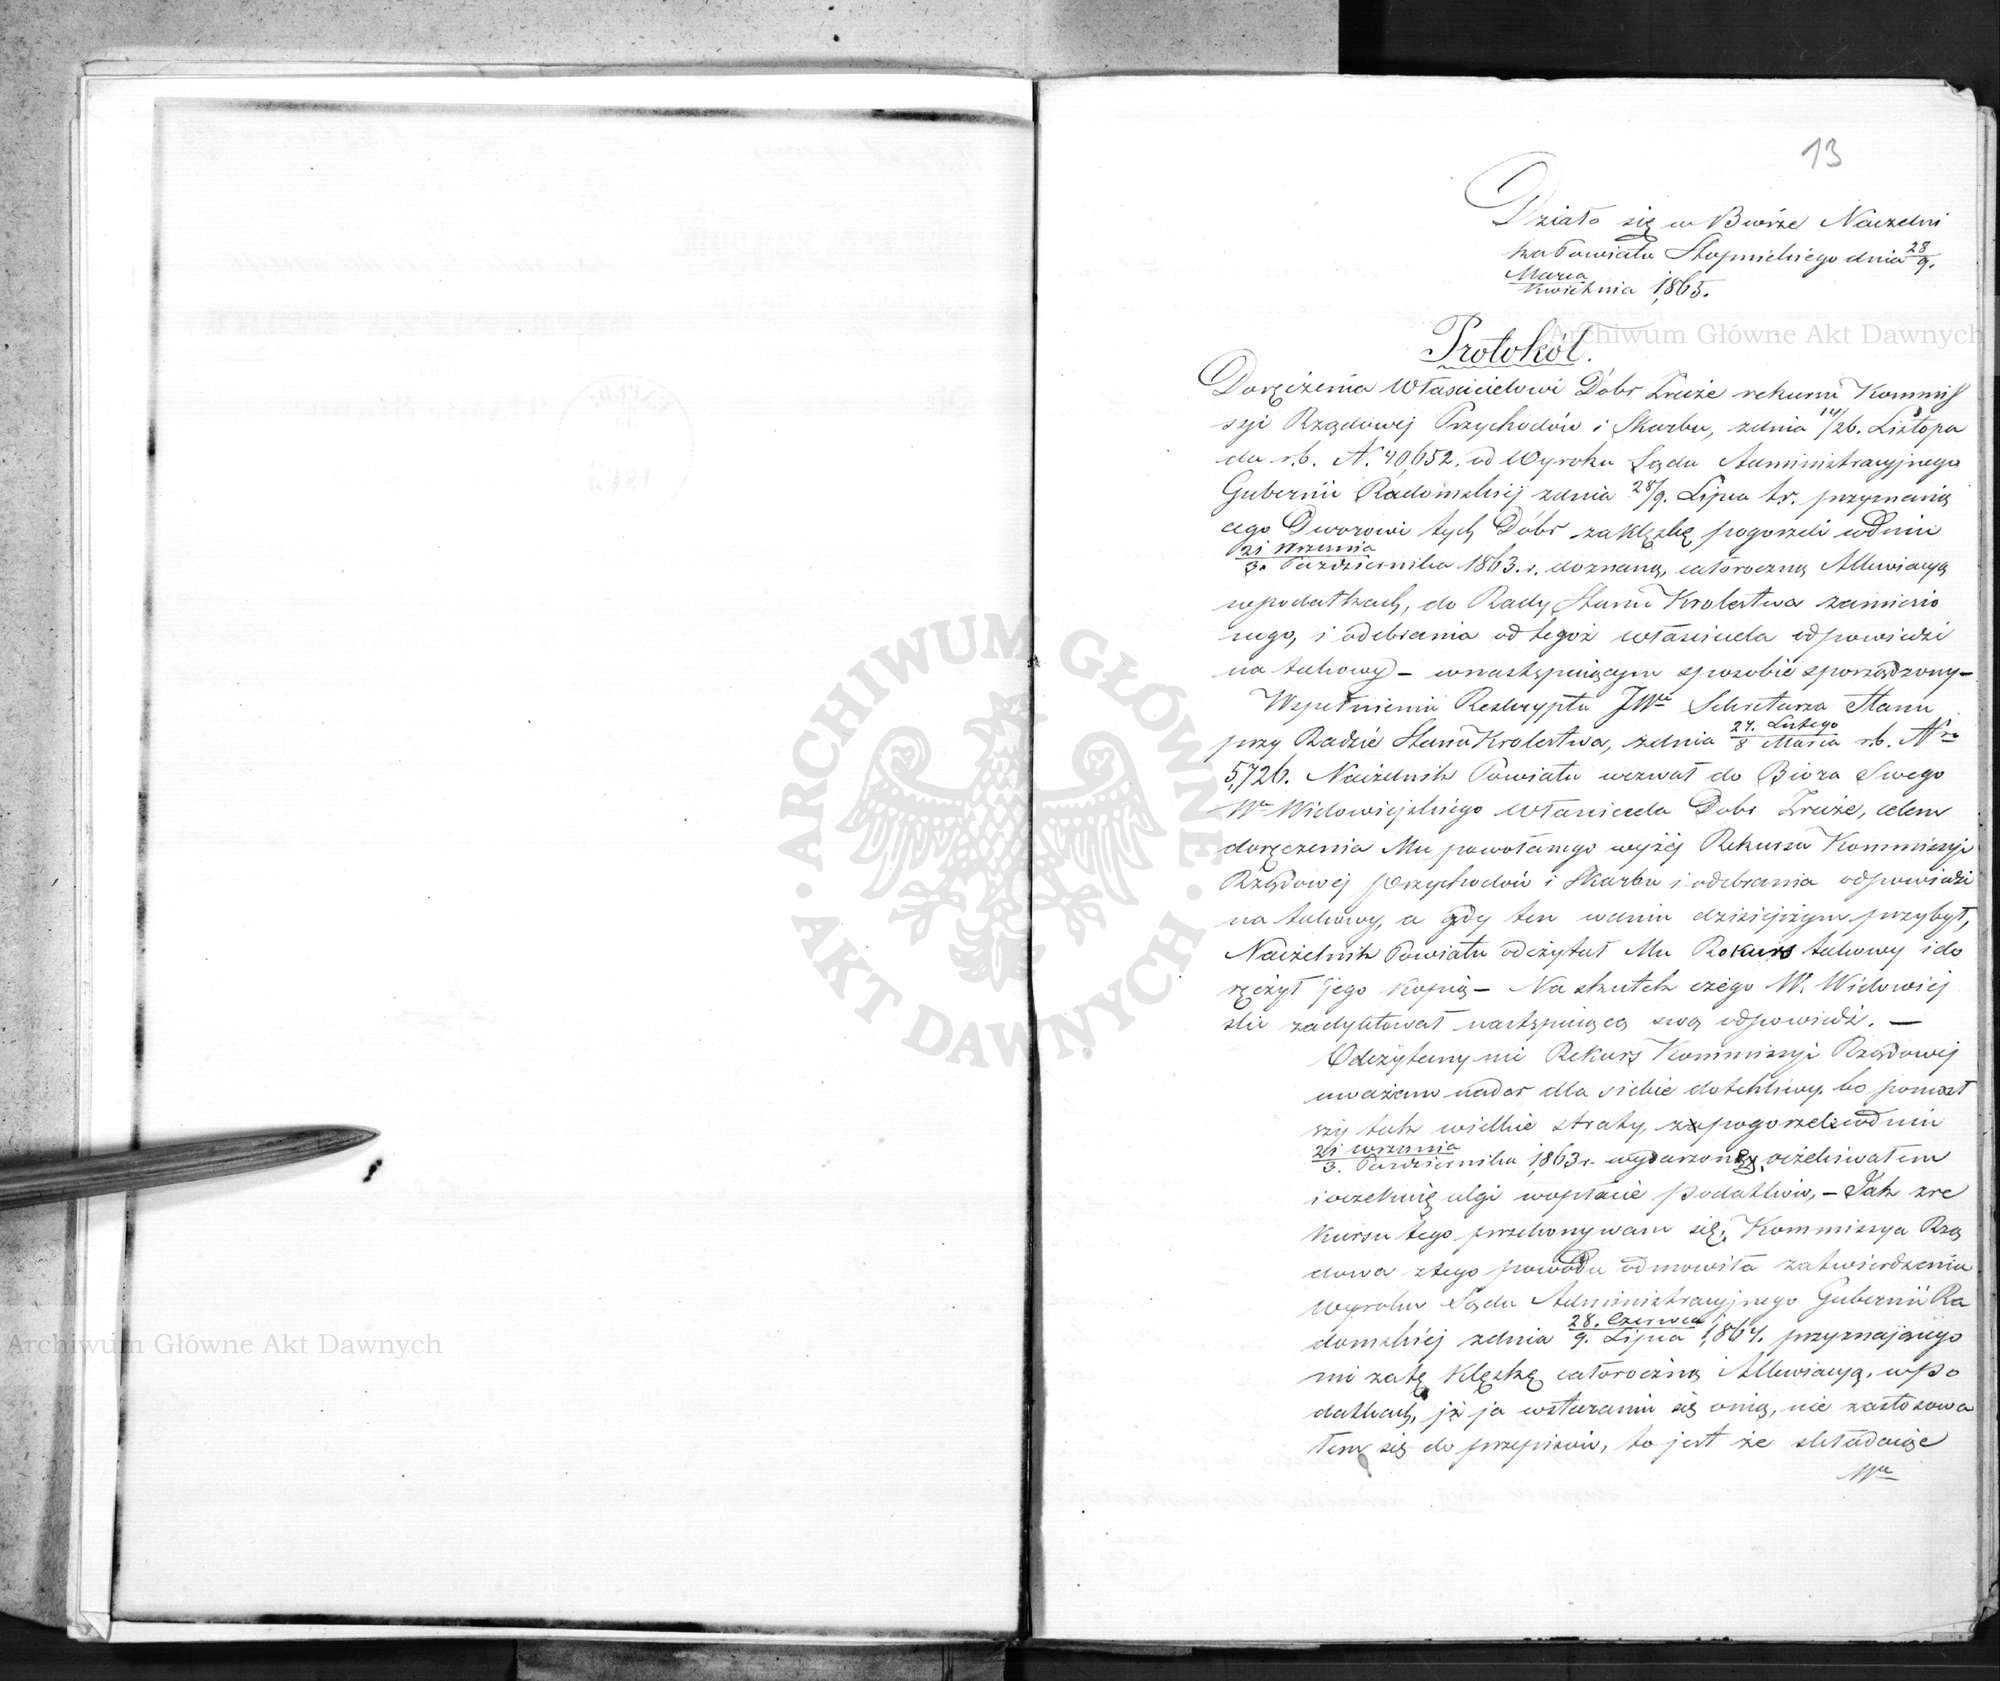 13
Działo się w Biórze Naczelni
ka Powiatu Stopnickiego dnia 28/9.
Marca/Kwietnia 1865.
Protokół.
Doręczenia Właścicielowi Dóbr Zrecze rekursu Kommis
syi Rządowej Przychodów i Skarbu, zdnia 14/26. Listopa
da r.b. N. 40,652. od Wyroku Sądu Administracyjnego
Gubernii Radomskiej zdnia 28/9. Lipca t.r. przyznanią
cego Dworowi tych Dóbr za klęskę pogorzeli wdniu
21 Września/3. Października 1863.r. doznaną, całoroczną Allewiacyą
wpodatkach, do Rady Stanu Królestwa zaniesio
nego, i odebrania od tegoż właściciela odpowiedzi
na takowy – wnastępującym sposobie sporządzony –
Wspełnieniu Reskryptu JWo Sekretarza Stanu
przy Radzie Stanu Królestwa, zdnia 24. Lutego/8 Marca r.b. Nro
5,726. Naczelnik Powiatu wezwał do Biora Swego
Wo Widowiejskiego Właściciela Dóbr Zrecze, celem
doręczenia Mu powołanego wyżej Rekursu Kommissyi
Rządowej Przychodów i Skarbu i odebrania odpowiedzi
na takowy, a gdy ten wdniu dzisiejszym przybył,
Naczelnik Powiatu odczytał Mu Rekurs takowy i do
ręczył jego kopią – Na skutek czego W. Widowiej
ski zadyktował następującą swą odpowiedź. —
Odczytany mi Rekurs Kommissyi Rządowej
uważam nader dla siebie dotkliwy. bo poniosł
szy tak wielkie straty, pogorzeli wdniu
21 września/3. Października 1863r. wydarzonej, oczekiwałem
i oczekuję ulgi wopłacie podatków, – Jak zre
kursu tego przekonywam się, Kommissya Rzą
dowa ztego powodu odmówiła zatwierdzenia
wyroku Sądu Administracyjnego Gubernii Ra
domskiej zdnia 28. Czerwca/9. Lipca 1,864. przyznającego
mi zatę klęskę całoroczną Allewiacyą, wpo
datkach, iż ja wstaraniu się onią, nie zastosowa
łem się do przepisów, to jest że składając
Archiwum Główne Akt Dawnych
Archiwum Główne Akt Dawnych
ARCHIWUM GŁÓWNE · AKT DAWNYCH ·